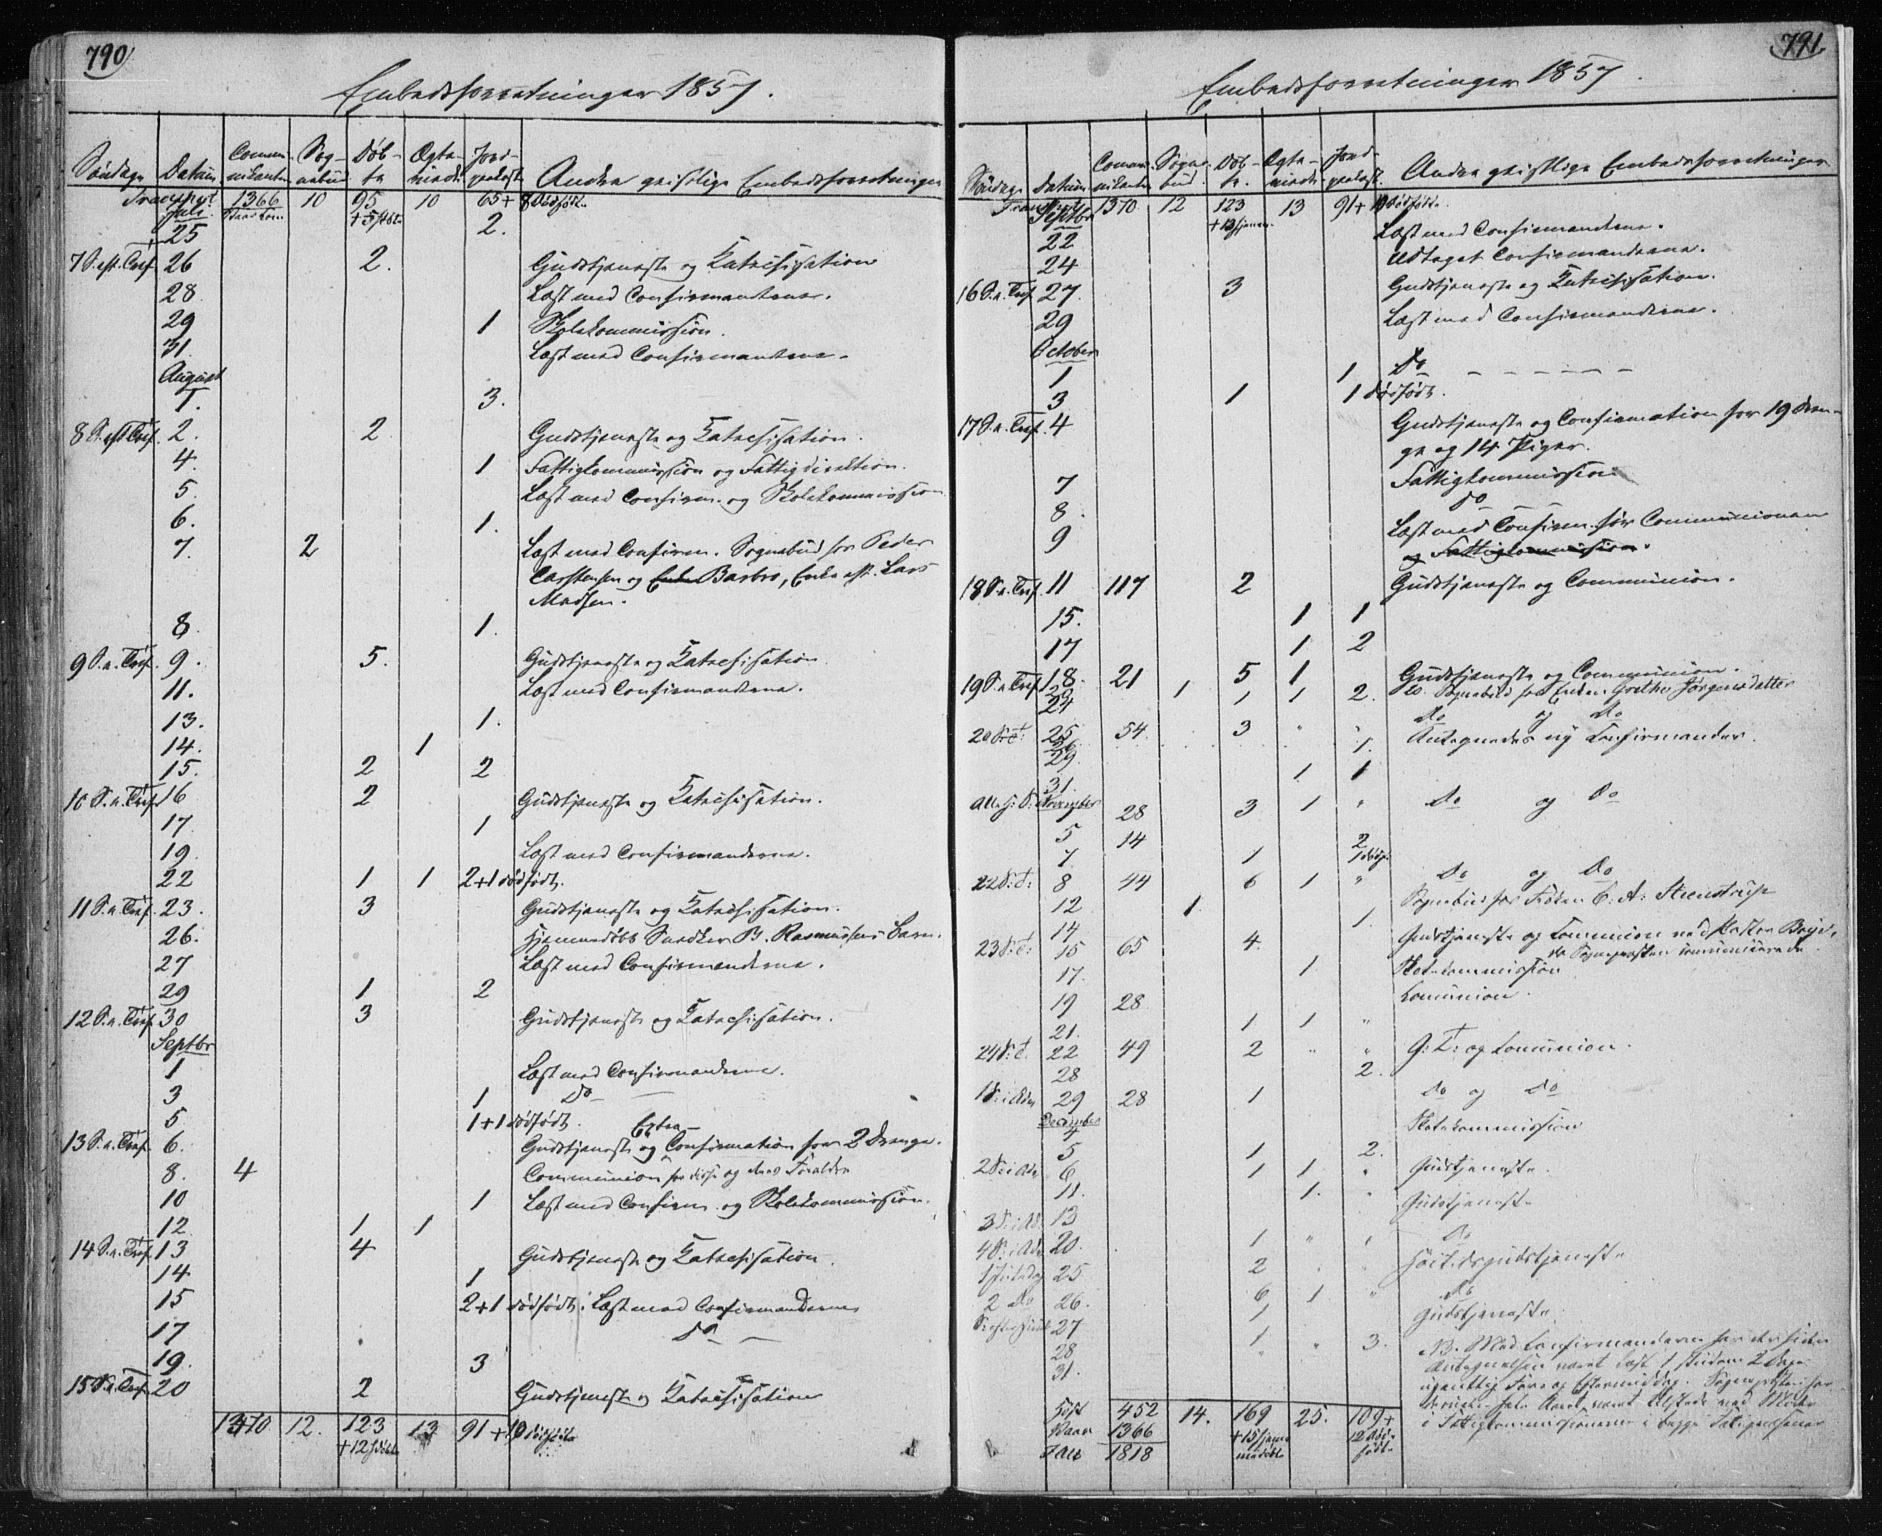 790
Embedsforretninger 1857.
Søndage Datum Communikanter Sognebud Døbte Ægteviede Jordpaakast. Andre geistlige Embedsforretninger
Transport 1366 10 95 10 65+8 dødfødte
Juli
25 2.
7 S. eft. Tref. 26 2. Gudstjeneste og Katechisation
28 Læst med Confirmanderne.
29 1 Skolekommission.
31 Læst med Confirmanderne.
August
1. 3.
8 S. eft Tref. 2. 2 Gudstjeneste og Katechisation.
4. 1 Fattigkommission og Fattigdirektion.
5. Læst med Confirm. og Skolekommission
6. 1.
7. 2 Læst med Confirm. Sognebud for Peder
Carstensen og Barbro, Enke eft. Lars
Madsen.
8. 1.
9 S. e. Tref. 9. 5. Gudstjeneste og Katechisation
11. Læst med Confirmanderne.
13. 1.
14. 1
15. 2 2
10 S. e. Tref. 16 2 Gudstjeneste og Katechisation.
17. 1
19. Læst med Confirmanderne.
22 1 1 2+1 dødfødt.
11 S. e. Tref. 23. 3 Gudstjeneste og Katechisation.
26. Hjemmedøbt Snedker Rasmussens Barn.
27 Læst med Confirmanderne.
29 1 2
12 S. e. Tref. 30 3 Gudstjeneste og Katechisation.
Septbr
1 Læst med Confirmanderne.
3 1 Do
5 1+1 dødfødt. Extra
13 S. e. Tref. 6. Gudstjeneste og Confirmation for 2 Drenge.
8. 4 Communion for disse og deres Forældre
10 1 Læst med Confirm. og Skolekommission.
12 1 1
14 S. e. Tref. 13 4 Gudstjeneste og Katechisation.
14 1
15 2+1 dødfødt. Læst med Confirmanderne
17 Do
19. 3
15 S. e. Tref. 20 2 Gudstjeneste og Katechisation
1370 12. 123 13 91+10 dødfødte
791
Embedsforretninger 1857.
Søndage Datum Communikanter Sognebud Døbte Ægteviede Jordpaakast. Andre geistlige Embedsforretninger
Transport 1370 12 123 13 91+10 dødfødte
Septbr
22 Læst med Confirmanderne.
24 Udtaget Confirmanderne.
16 S. e. Tref. 27. 3 Gudstjeneste og Katechisation.
29 Læst med Confirmanderne.
October
1 1 Do
3 1 1 dødfødt.
17 S. e. Tref. 4 Gudstjeneste og Confirmation for 19 Dren-
ge og 14 Piger.
7 Fattigkommission
8. Do
9 Læst med Confirm. før Communionen
og Fattigkommission.
18 S. e. Tref. 11 117 2 Gudstjeneste og Communion.
15. 1 1
17 1 2
19 S. e. Tref. 18. 21 5 1 Gudstjeneste og Communion.
24 1 1 1 2. Sognebud for Enken Grethe Jørgensdatter
20 S: e: T: 25 54. 3 " " Do og Do
29. 1. Antegnedes ny Confirmander.
31. 1 1
Alle H: D: November 28 3 1 " Do og Do
5 14
7. 1 2
22 S: e: T: 8 44 6 1 " Do og Do
12 1. Sognebud for Frøken C: A: Steenstrup
14 1.
23 S: e: T: 15 65 4. Gudstjeneste og Communion ved Pastor
da Sognepræsten communicerede
17. 1 Skolekommission
19 28 Communion.
21. 1 1 "
24 S: e: T. 22 49 2 " " G: T: og Communion.
28 2.
1 S: i Adv 29 28 1 Do og Do
December
4 Skolekommission
5 1 2.
2 S: i Adv 6 1 1 " Gudstjeneste.
11. 1.
3 S: i Ad. 13 Gudstjeneste
4 S: i Adv 20. 1 " 1 Do
1 Juledag 25 2 " " Høitidsgudstjeneste
2 Do 26. 6 1 " Do
S: efter Juul 27 1 Gudstjeneste
28 1 " 3.
31. NB. Med Confirmanderne har der siden
Antegnelsen været læst 2 Dage
ugentlig Før og Eftermiddag. Sognepræsten har
452 14. 169 25. 109+
1366 12 Død-
fødte
1818